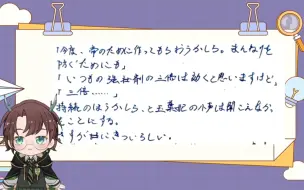 「今度、帝のために作ってもらおうかしら。まんなりを
防ぐためにも」
「いつもの強壮剤の三倍は効くと思いますけど」
「三倍……」
持続のほうかしら、と玉葉妃の小声は聞こえなか
ことにする。
さすがにきついらしい。